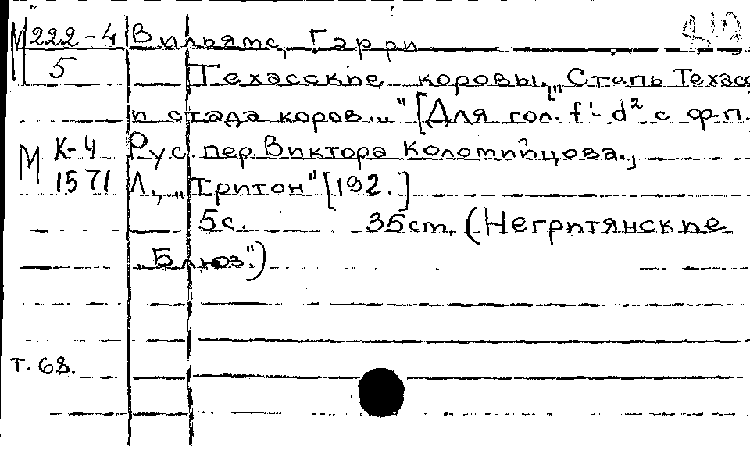 М 222-4 Вильямс, Гарри
5 Техасские коровы. „Степь Техас
и стада коров..." [Для гол. f¹-d² с ф.п.
М К-4 Рус. пер. Виктора Коломийцова.,
1571 Л., „Тритон" [192.]
5с. 35ст. (Негритянские
„Блюз.")
т. 68.